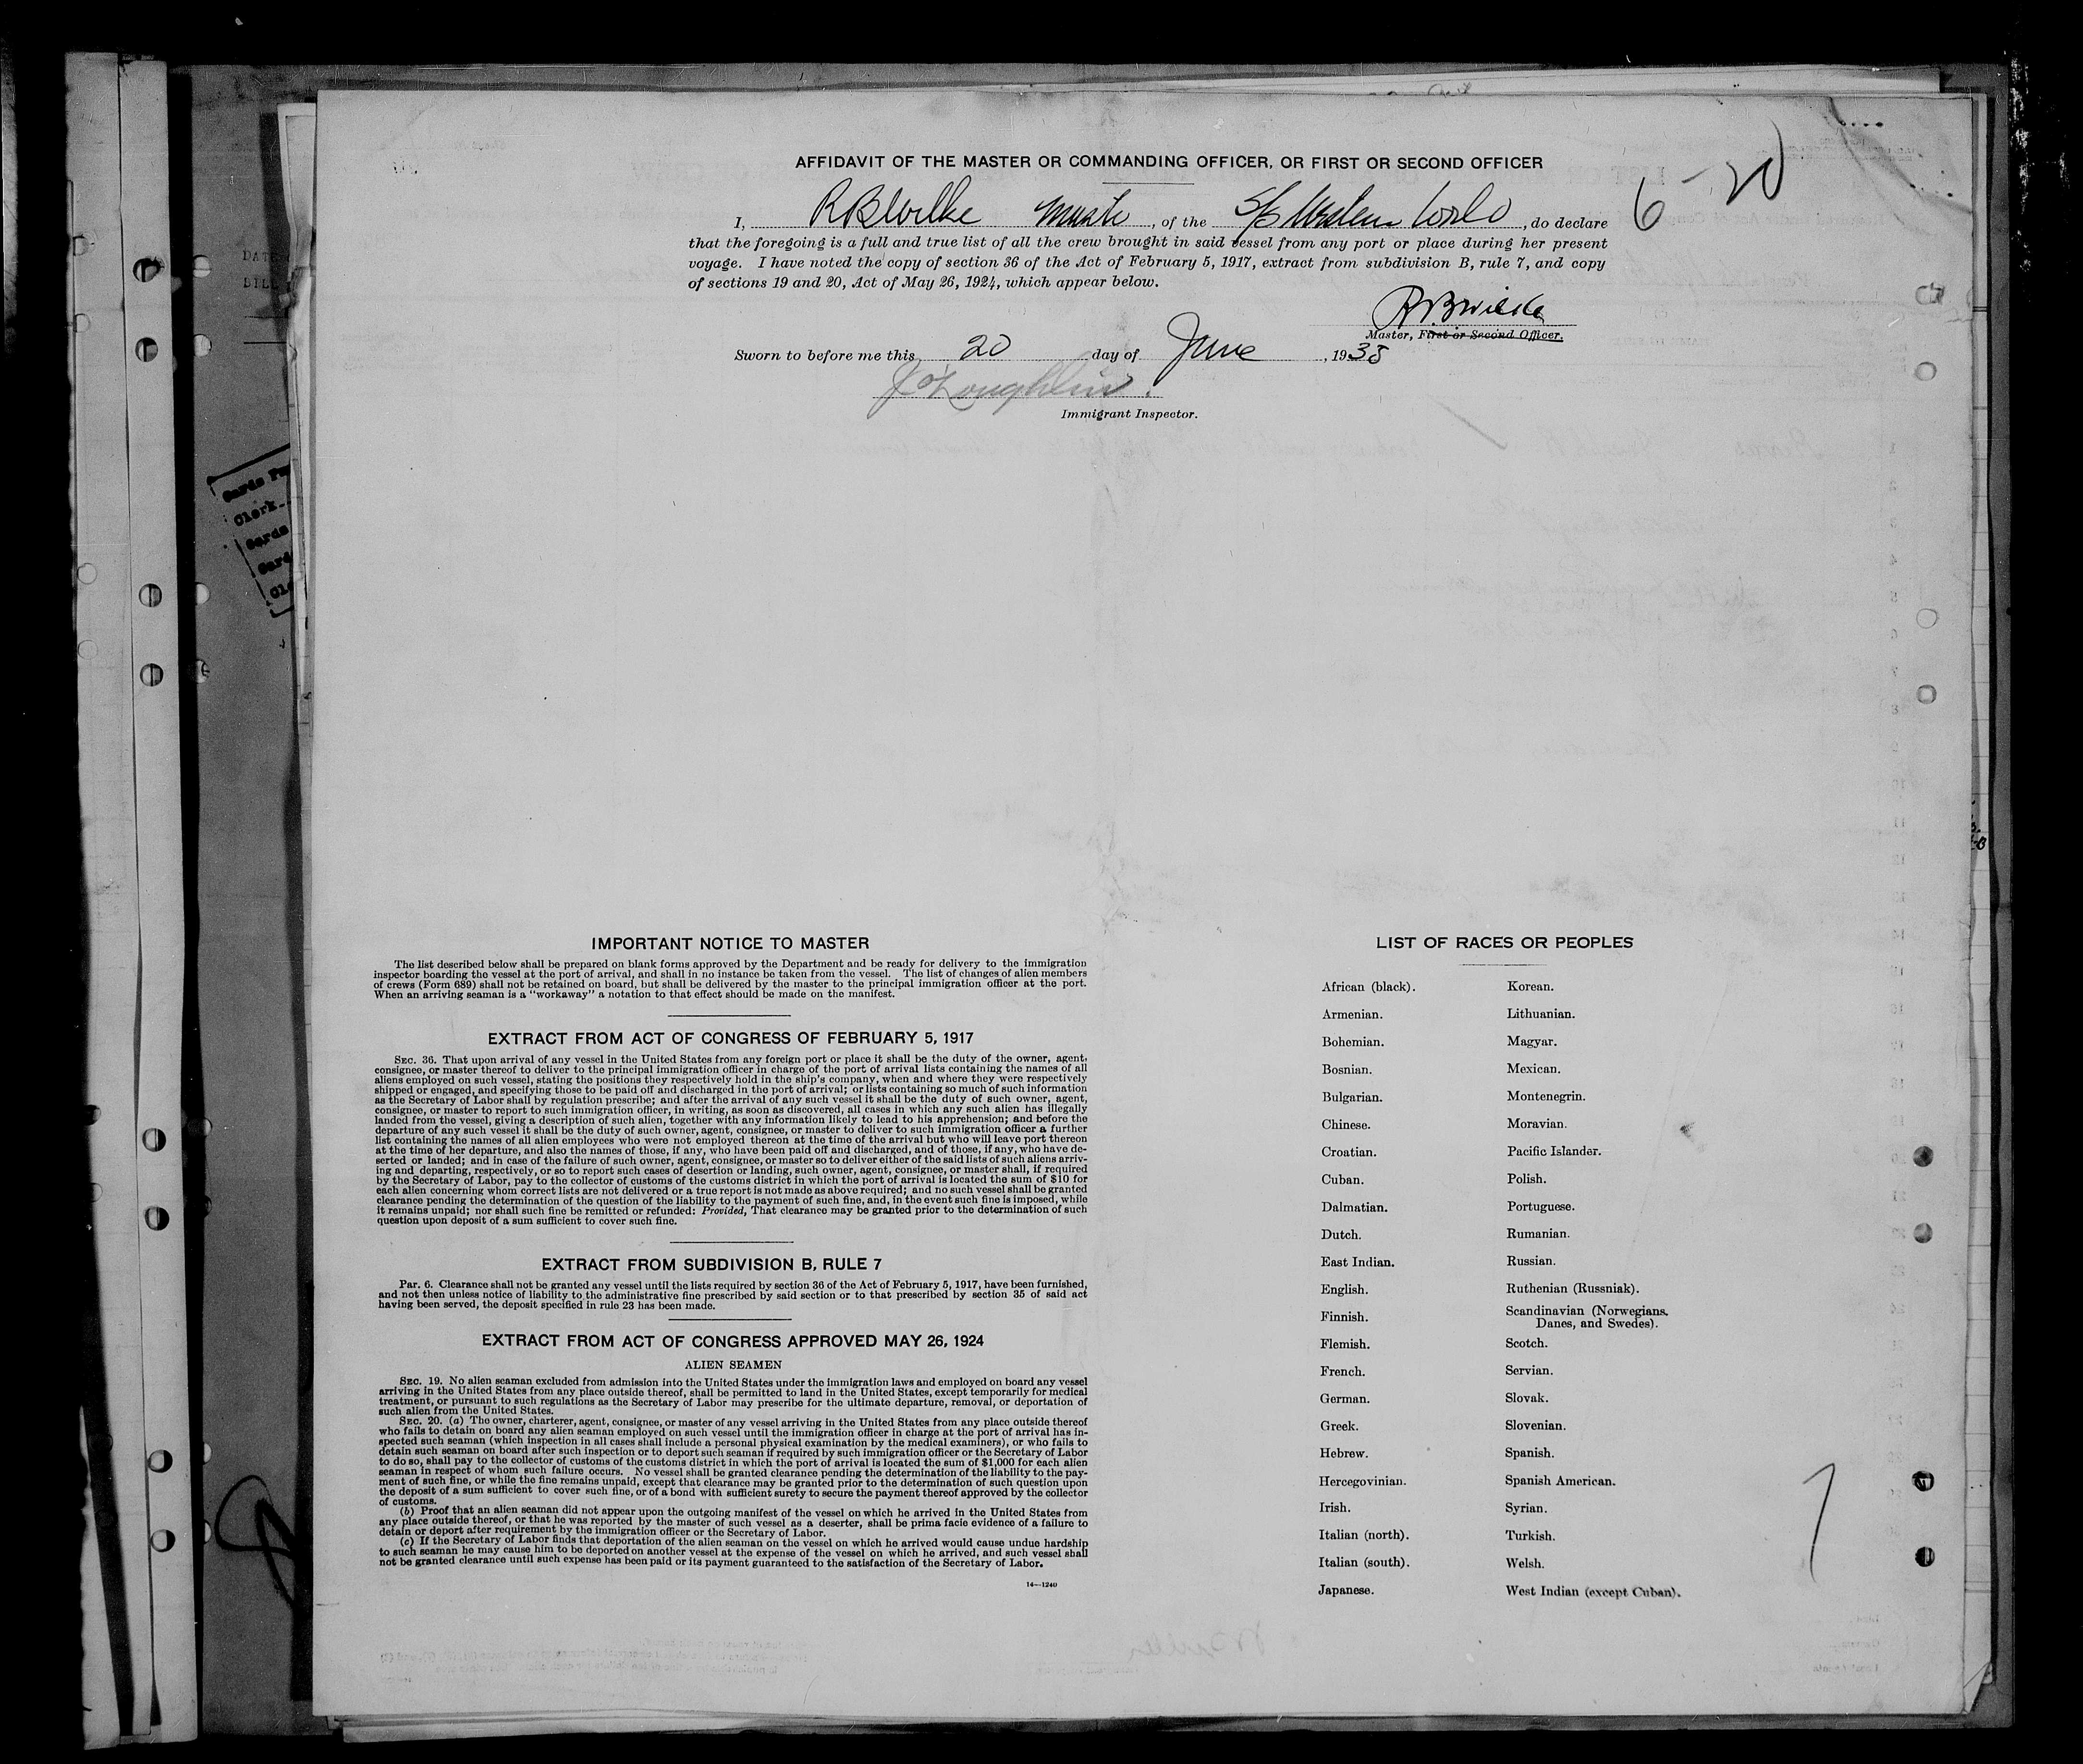 AFFIDAVIT OF THE MASTER OR COMMANDING OFFICER, OR FIRST OR SECOND OFFICER
6-20
I, R B Wilke Master, of the S/S Western World, do declare
that the foregoing is a full and true list of all the crew brought in said vessel from any port or place during her present
voyage. I have noted the copy of section 36 of the Act of February 5, 1917, extract from subdivision B, rule 7, and copy
of sections 19 and 20, Act of May 26, 1924, which appear below.
R B Wilke
Master, First or Second Officer.
Sworn to before me this 20 day of June, 1935
J O'Loughlin.
Immigrant Inspector.
Clerk
IMPORTANT NOTICE TO MASTER
The list described below shall be prepared on blank forms approved by the Department and be ready for delivery to the immigration
inspector boarding the vessel at the port of arrival, and shall in no instance be taken from the vessel. The list of changes of alien members
of crews (Form 689) shall not be retained on board, but shall be delivered by the master to the principal immigration officer at the port.
When an arriving seaman is a "workaway" a notation to that effect should be made on the manifest.
EXTRACT FROM ACT OF CONGRESS OF FEBRUARY 5, 1917
SEC. 36. That upon arrival of any vessel in the United States from any foreign port or place it shall be the duty of the owner, agent,
consignee, or master thereof to deliver to the principal immigration officer in charge of the port of arrival lists containing the names of all
aliens employed on such vessel, stating the positions they respectively hold in the ship's company, when and where they were respectively
shipped or engaged, and specifying those to be paid off and discharged in the port of arrival; or lists containing so much of such information
as the Secretary of Labor shall by regulation prescribe; and after the arrival of any such vessel it shall be the duty of such owner, agent,
consignee, or master to report to such immigration officer, in writing, as soon as discovered, all cases in which any such alien has illegally
landed from the vessel, giving a description of such alien, together with any information likely to lead to his apprehension; and before the
departure of any such vessel it shall be the duty of such owner, agent, consignee, or master to deliver to such immigration officer a further
list containing the names of all alien employees who were not employed thereon at the time of the arrival but who will leave port thereon
at the time of her departure, and also the names of those, if any, who have been paid off and discharged, and of those, if any, who have de-
serted or landed; and in case of the failure of such owner, agent, consignee, or master so to deliver either of the said lists of such aliens arriv-
ing and departing, respectively, or so to report such cases of desertion or landing, such owner, agent, consignee, or master shall, if required
by the Secretary of Labor, pay to the collector of customs of the customs district in which the port of arrival is located the sum of $10 for
each alien concerning whom correct lists are not delivered or a true report is not made as above required; and no such vessel shall be granted
clearance pending the determination of the question of the liability to the payment of such fine, and, in the event such fine is imposed, while
it remains unpaid; nor shall such fine be remitted or refunded: Provided, That clearance may be granted prior to the determination of such
question upon deposit of a sum sufficient to cover such fine.
EXTRACT FROM SUBDIVISION B, RULE 7
Par. 6. Clearance shall not be granted any vessel until the lists required by section 36 of the Act of February 5, 1917, have been furnished,
and not then unless notice of liability to the administrative fine prescribed by said section or to that prescribed by section 35 of said act
having been served, the deposit specified in rule 23 has been made.
EXTRACT FROM ACT OF CONGRESS APPROVED MAY 26, 1924
ALIEN SEAMEN
SEC. 19. No alien seaman excluded from admission into the United States under the immigration laws and employed on board any vessel
arriving in the United States from any place outside thereof, shall be permitted to land in the United States, except temporarily for medical
treatment, or pursuant to such regulations as the Secretary of Labor may prescribe for the ultimate departure, removal, or deportation of
such alien from the United States.
SEC. 20. (a) The owner, charterer, agent, consignee, or master of any vessel arriving in the United States from any place outside thereof
who fails to detain on board any alien seaman employed on such vessel until the immigration officer in charge at the port of arrival has in-
spected such seaman (which inspection in all cases shall include a personal physical examination by the medical examiners), or who fails to
detain such seaman on board after such inspection or to deport such seaman if required by such immigration officer or the Secretary of Labor
to do so, shall pay to the collector of customs of the customs district in which the port of arrival is located the sum of $1,000 for each alien
seaman in respect of whom such failure occurs. No vessel shall be granted clearance pending the determination of the liability to the pay-
ment of such fine, or while the fine remains unpaid, except that clearance may be granted prior to the determination of such question upon
the deposit of a sum sufficient to cover such fine, or of a bond with sufficient surety to secure the payment thereof approved by the collector
of customs.
(b) Proof that an alien seaman did not appear upon the outgoing manifest of the vessel on which he arrived in the United States from
any place outside thereof, or that he was reported by the master of such vessel as a deserter, shall be prima facie evidence of a failure to
detain or deport after requirement by the immigration officer or the Secretary of Labor.
(c) If the Secretary of Labor finds that deportation of the alien seaman on the vessel on which he arrived would cause undue hardship
to such seaman he may cause him to be deported on another vessel at the expense of the vessel on which he arrived, and such vessel shall
not be granted clearance until such expense has been paid or its payment guaranteed to the satisfaction of the Secretary of Labor.
14—1240
LIST OF RACES OR PEOPLES
African (black). Korean.
Armenian. Lithuanian.
Bohemian. Magyar.
Bosnian. Mexican.
Bulgarian. Montenegrin.
Chinese. Moravian.
Croatian. Pacific Islander.
Cuban. Polish.
Dalmatian. Portuguese.
Dutch. Rumanian.
East Indian. Russian.
English. Ruthenian (Russniak).
Finnish. Scandinavian (Norwegians,
Danes, and Swedes).
Flemish. Scotch.
French. Servian.
German. Slovak.
Greek. Slovenian.
Hebrew. Spanish.
Hercegovinian. Spanish American.
Irish. Syrian.
Italian (north). Turkish.
Italian (south). Welsh.
Japanese. West Indian (except Cuban).